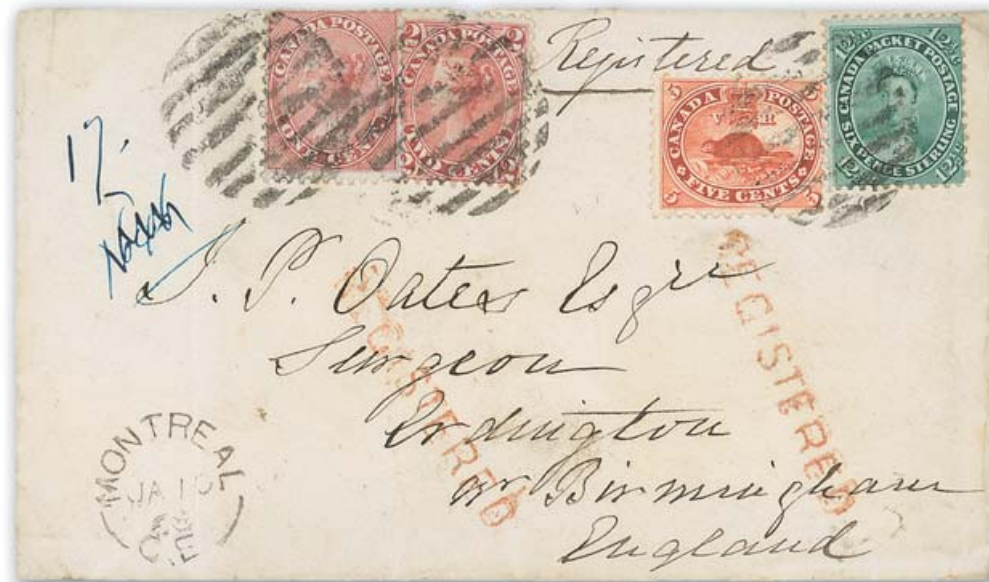 CANADA POSTAGE
ONE CENT
2 CANADA POSTAGE 2
2 TWO CENTS 2
Registered
5 CANADA POSTAGE 5
V R
5 FIVE CENTS 5
12½c CANADA PACKET POSTAGE 12½c
12½c SIX PENCE STERLING 12½c
J. P. Oates Esqre
Surgeon
Erdington
nr Birmingham
England
REGISTERED
REGISTERED
MONTREAL
JA 10
C.E.